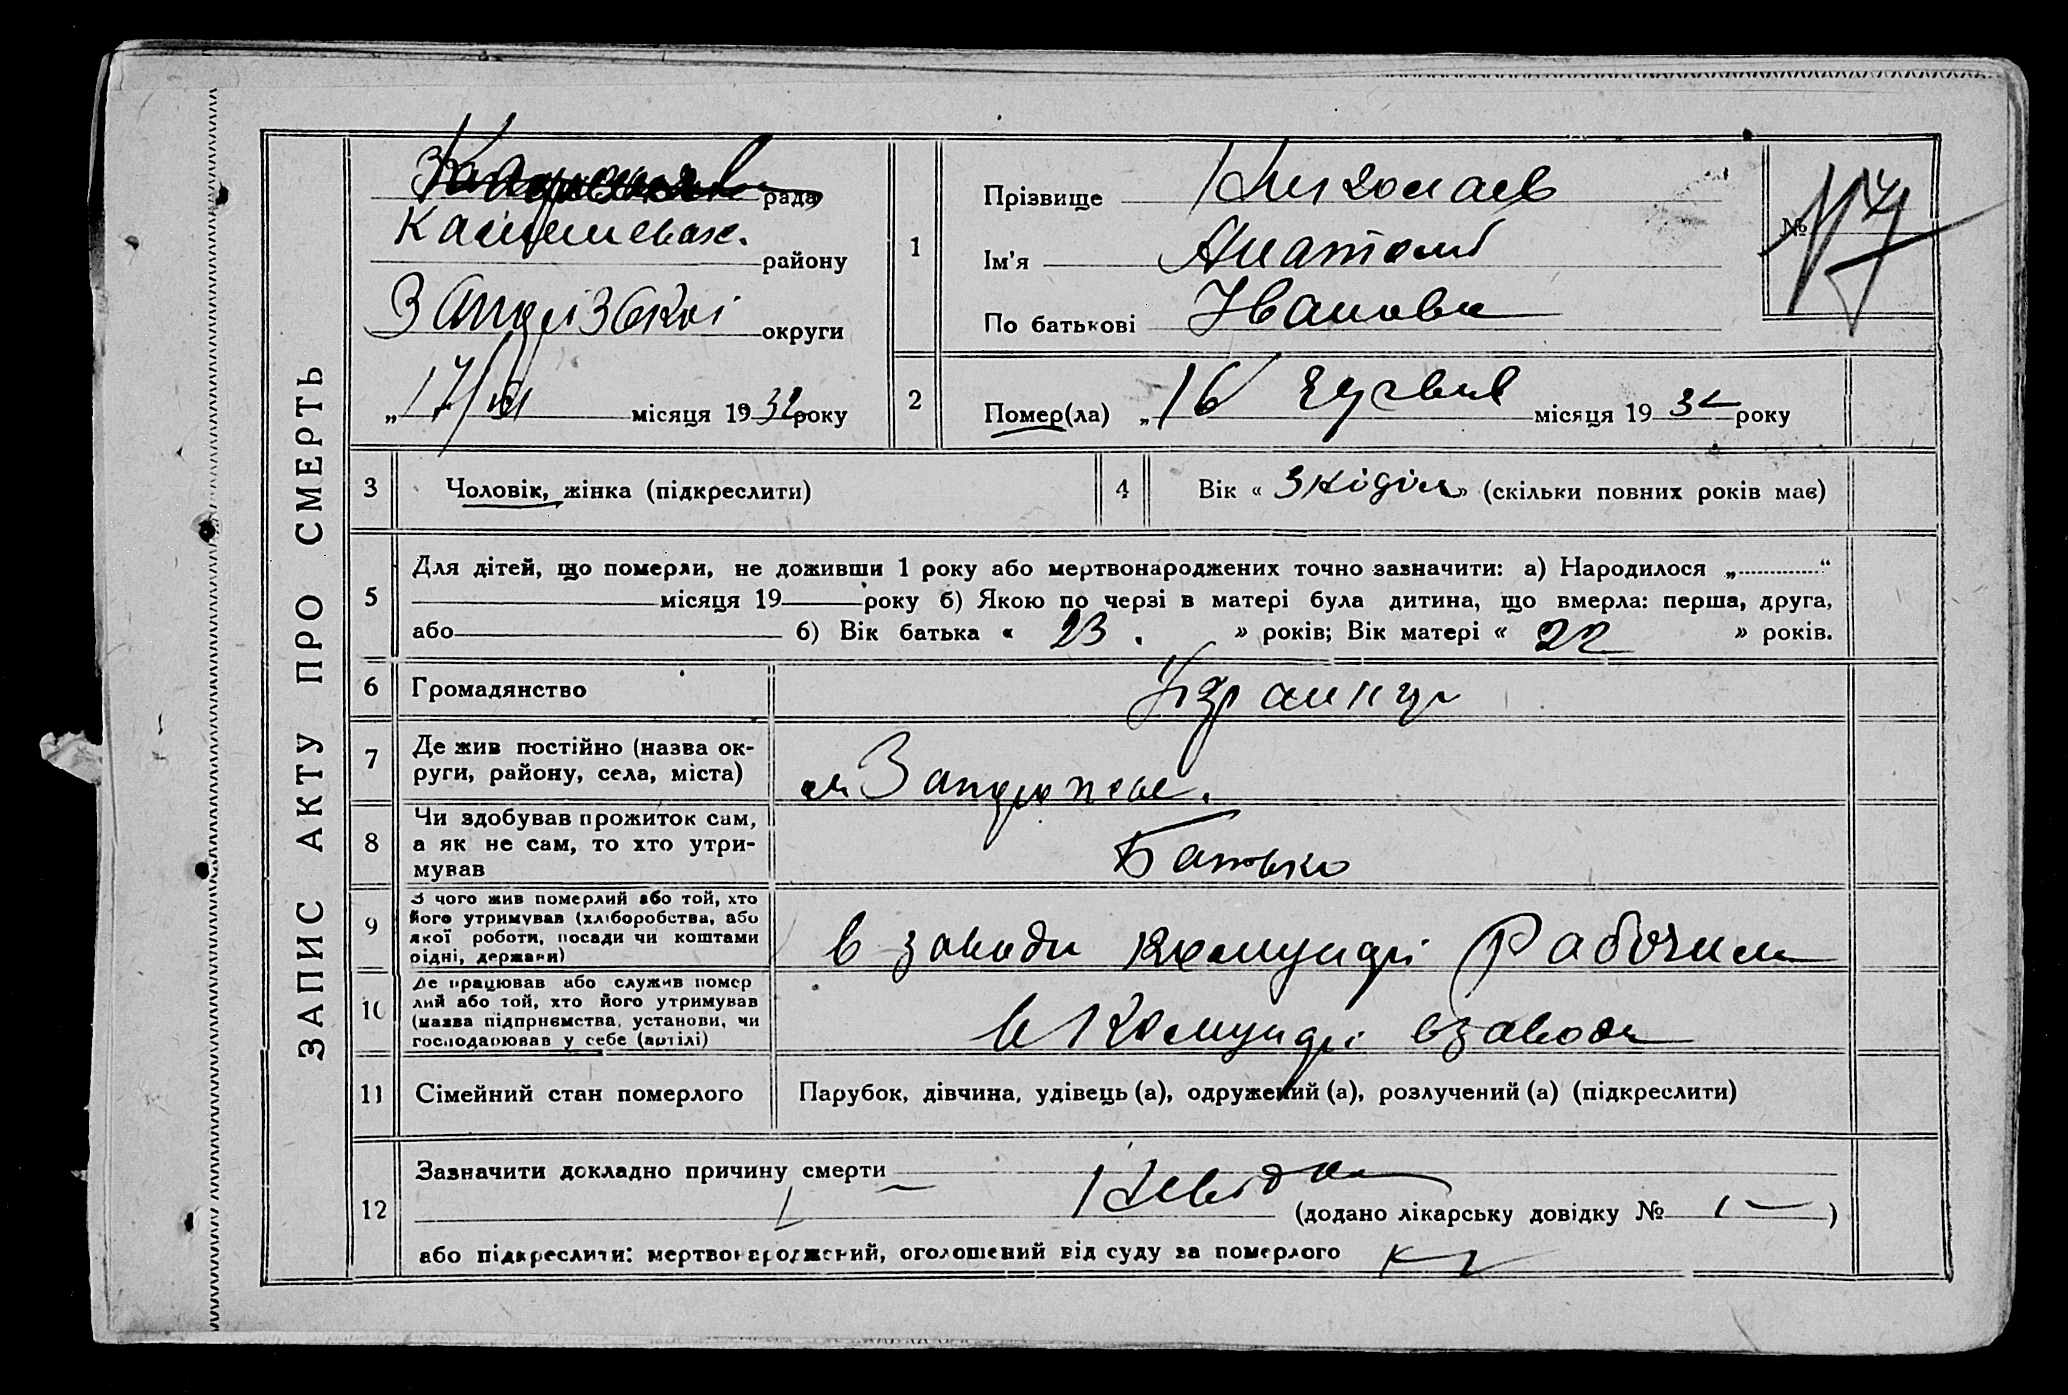 ЗАПИС АКТУ ПРО СМЕРТЬ
рада
району
округи
„17/VI місяця 1932 року
1
Прізвище Николаев
Ім'я Анатолій
По батькові Иванови
№
2
Помер(ла) „16 місяця 1932 року
3
Чоловік, жінка (підкреслити)
4
Вік « » (скільки повних років має)
5
Для дітей, що померли, не доживши 1 року або мертвонароджених точно зазначити: а) Народилося „ “
місяця 19 року б) Якою по черзі в матері була дитина, що вмерла: перша, друга,
або б) Вік батька « 23 . » років; Вік матері « 22 » років.
6
Громадянство
7
Де жив постійно (назва ок-
руги, району, села, міста)
м Запорожье.
8
Чи здобував прожиток сам,
а як не сам, то хто утри-
мував
Батько
9
З чого жив померлий або той, хто
його утримував (хліборобства, або
якої роботи, посади чи коштами
рідні, держави)
в заводи Комунарі Рабочим
10
Де працював або служив помер
лий або той, хто його утримував
(назва підприємства, установи, чи
господарював у себе (артілі)
в Комунарі взаводи
11
Сімейний стан померлого
Парубок, дівчина, удівець (а), одружений (а), розлучений (а) (підкреслити)
12
Зазначити докладно причину смерти
(додано лікарську довідку № )
або підкреслити: мертвонароджений, оголошений від суду за померлого